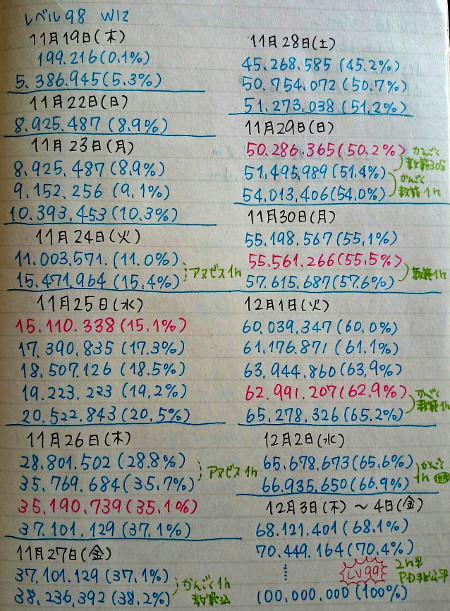 レベル98 WIZ
11月19日(木)
199.216(0.1%)
5.386.945(5.3%)
11月22日(日)
8.925.487(8.9%)
11月23日(月)
8,925,487(8.9%)
9,152,256(9,1%)
10.393,453(10.3%)
11月24日(火)
11.003,571.(11.0%)
15.471,964(15.4%)
アヌビス1h
11月25日(水)
15.110.338(15.1%)
17,390,835(17.3%)
18,507,126(18.5%)
19.223.223(19,2%)
20,522,843(20,5%)
11月26日(木)
28.801,502(28,8%)
35,769,684(35.7%)
アヌビス1h
35,190,739(35,1%)
37,101,129(37,1%)
11月27日(金)
37,101,129(37,1%)
38,236,392(38,2%)
かんごく1h
11月28日(土)
45.268.585(45.2%)
50.754.072(50.7%)
51,273,038(51,2%)
11月29日(日)
50.286.365(50.2%)
51,495,989(51.4%)
54,013,406(54,0%)
かんごく
1h
11月30日(月)
55,198,567(55,1%)
55,561,266(55,5%)
57,615,687(57,6%)
1h
12月1日(火)
60,039,347(60.0%)
61,176,871(61,1%)
63,944,860(63,9%)
62,991,207(62,9%)
65,278,326(65,2%)
かんごく
1h
12月2日(水)
65,678,673(65,6%)
66,935,650(66,9%)
かんごく
1h
12月3日(木)〜4日(金)
68,121,401(68,1%)
70,449,164(70,4%)
2h半
LV99
100,000,000(100%)